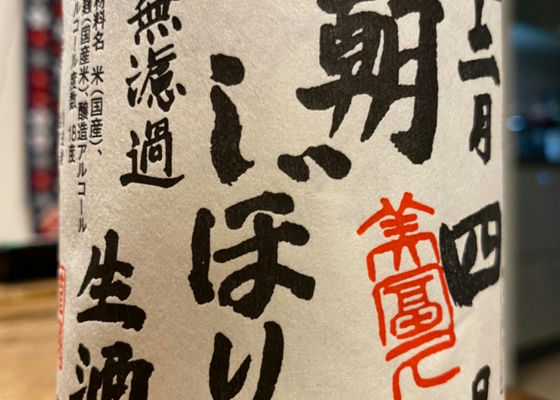 十二月四日
朝
しぼり
美冨久
無濾過
生酒
原材料名 米(国産)、
米麹(国産米)、醸造アルコール
アルコール度数 18度